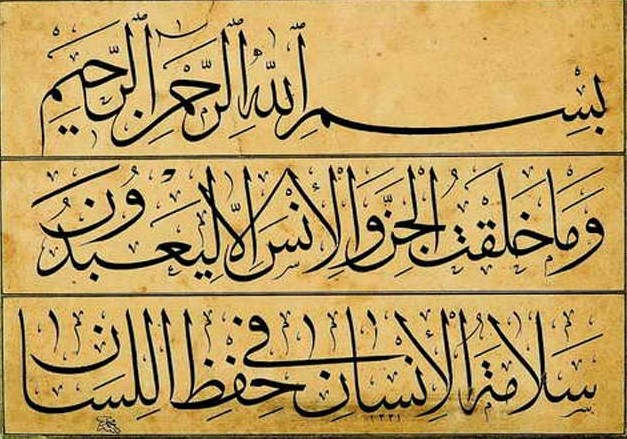 بسم الله الرحمن الرحيم
وما خلقت الجن والإنس إلا ليعبدون
سلامة الإنسان في حفظ اللسان